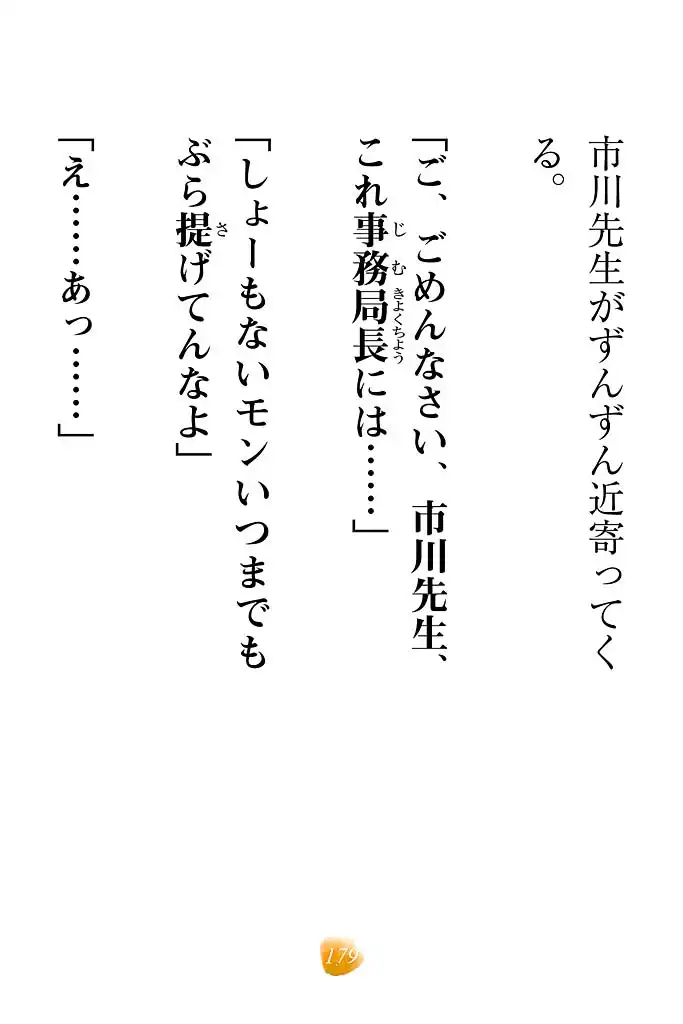 市川先生がずんずん近寄ってく
る。
「ご、ごめんなさい、市川先生、
これ事務局長には……」
「しょーもないモンいつまでも
ぶら提げてんなよ」
「え……あっ……」
179